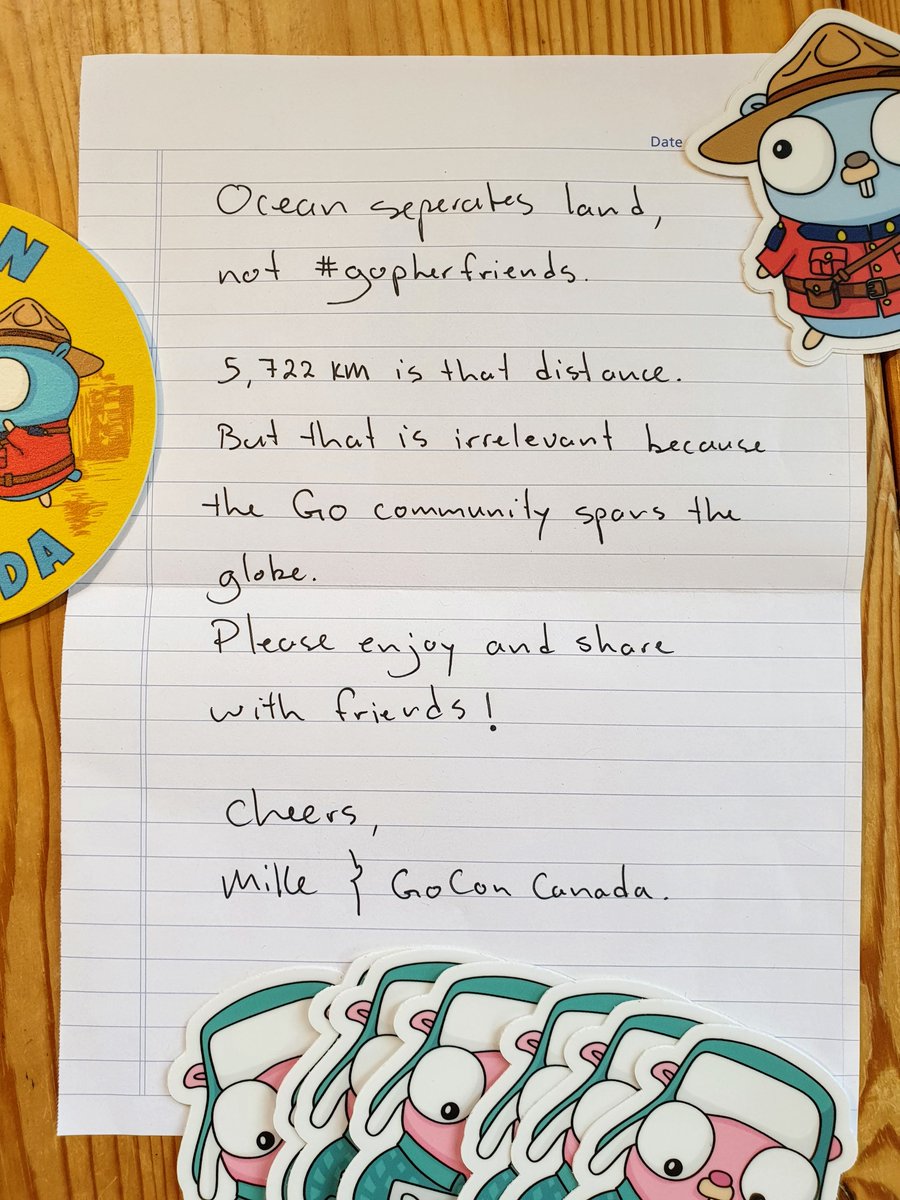 Date
Ocean seperates land,
not #gopherfriends.
5,722 km is that distance.
But that is irrelevant because
the Go community spans the
globe.
Please enjoy and share
with friends!
Cheers,
Mille & GoCon Canada.
N
DA